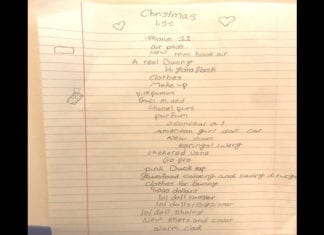 Christmas
list
iPhone 11
air pods
New mac book air
A real Bunny
Hydro flask
Clothes
Make up
Gucci slides
Chanel purs
perfum
essencial oil
American girl doll car
New shoes
earings/jwery
checkered vans
Go pro
pink Duck tap
coloring and
clothes for bunny
4,000 dollars
lol doll camper
lol dolls/bigsister
lol doll
New sheets and cover
alarm clock